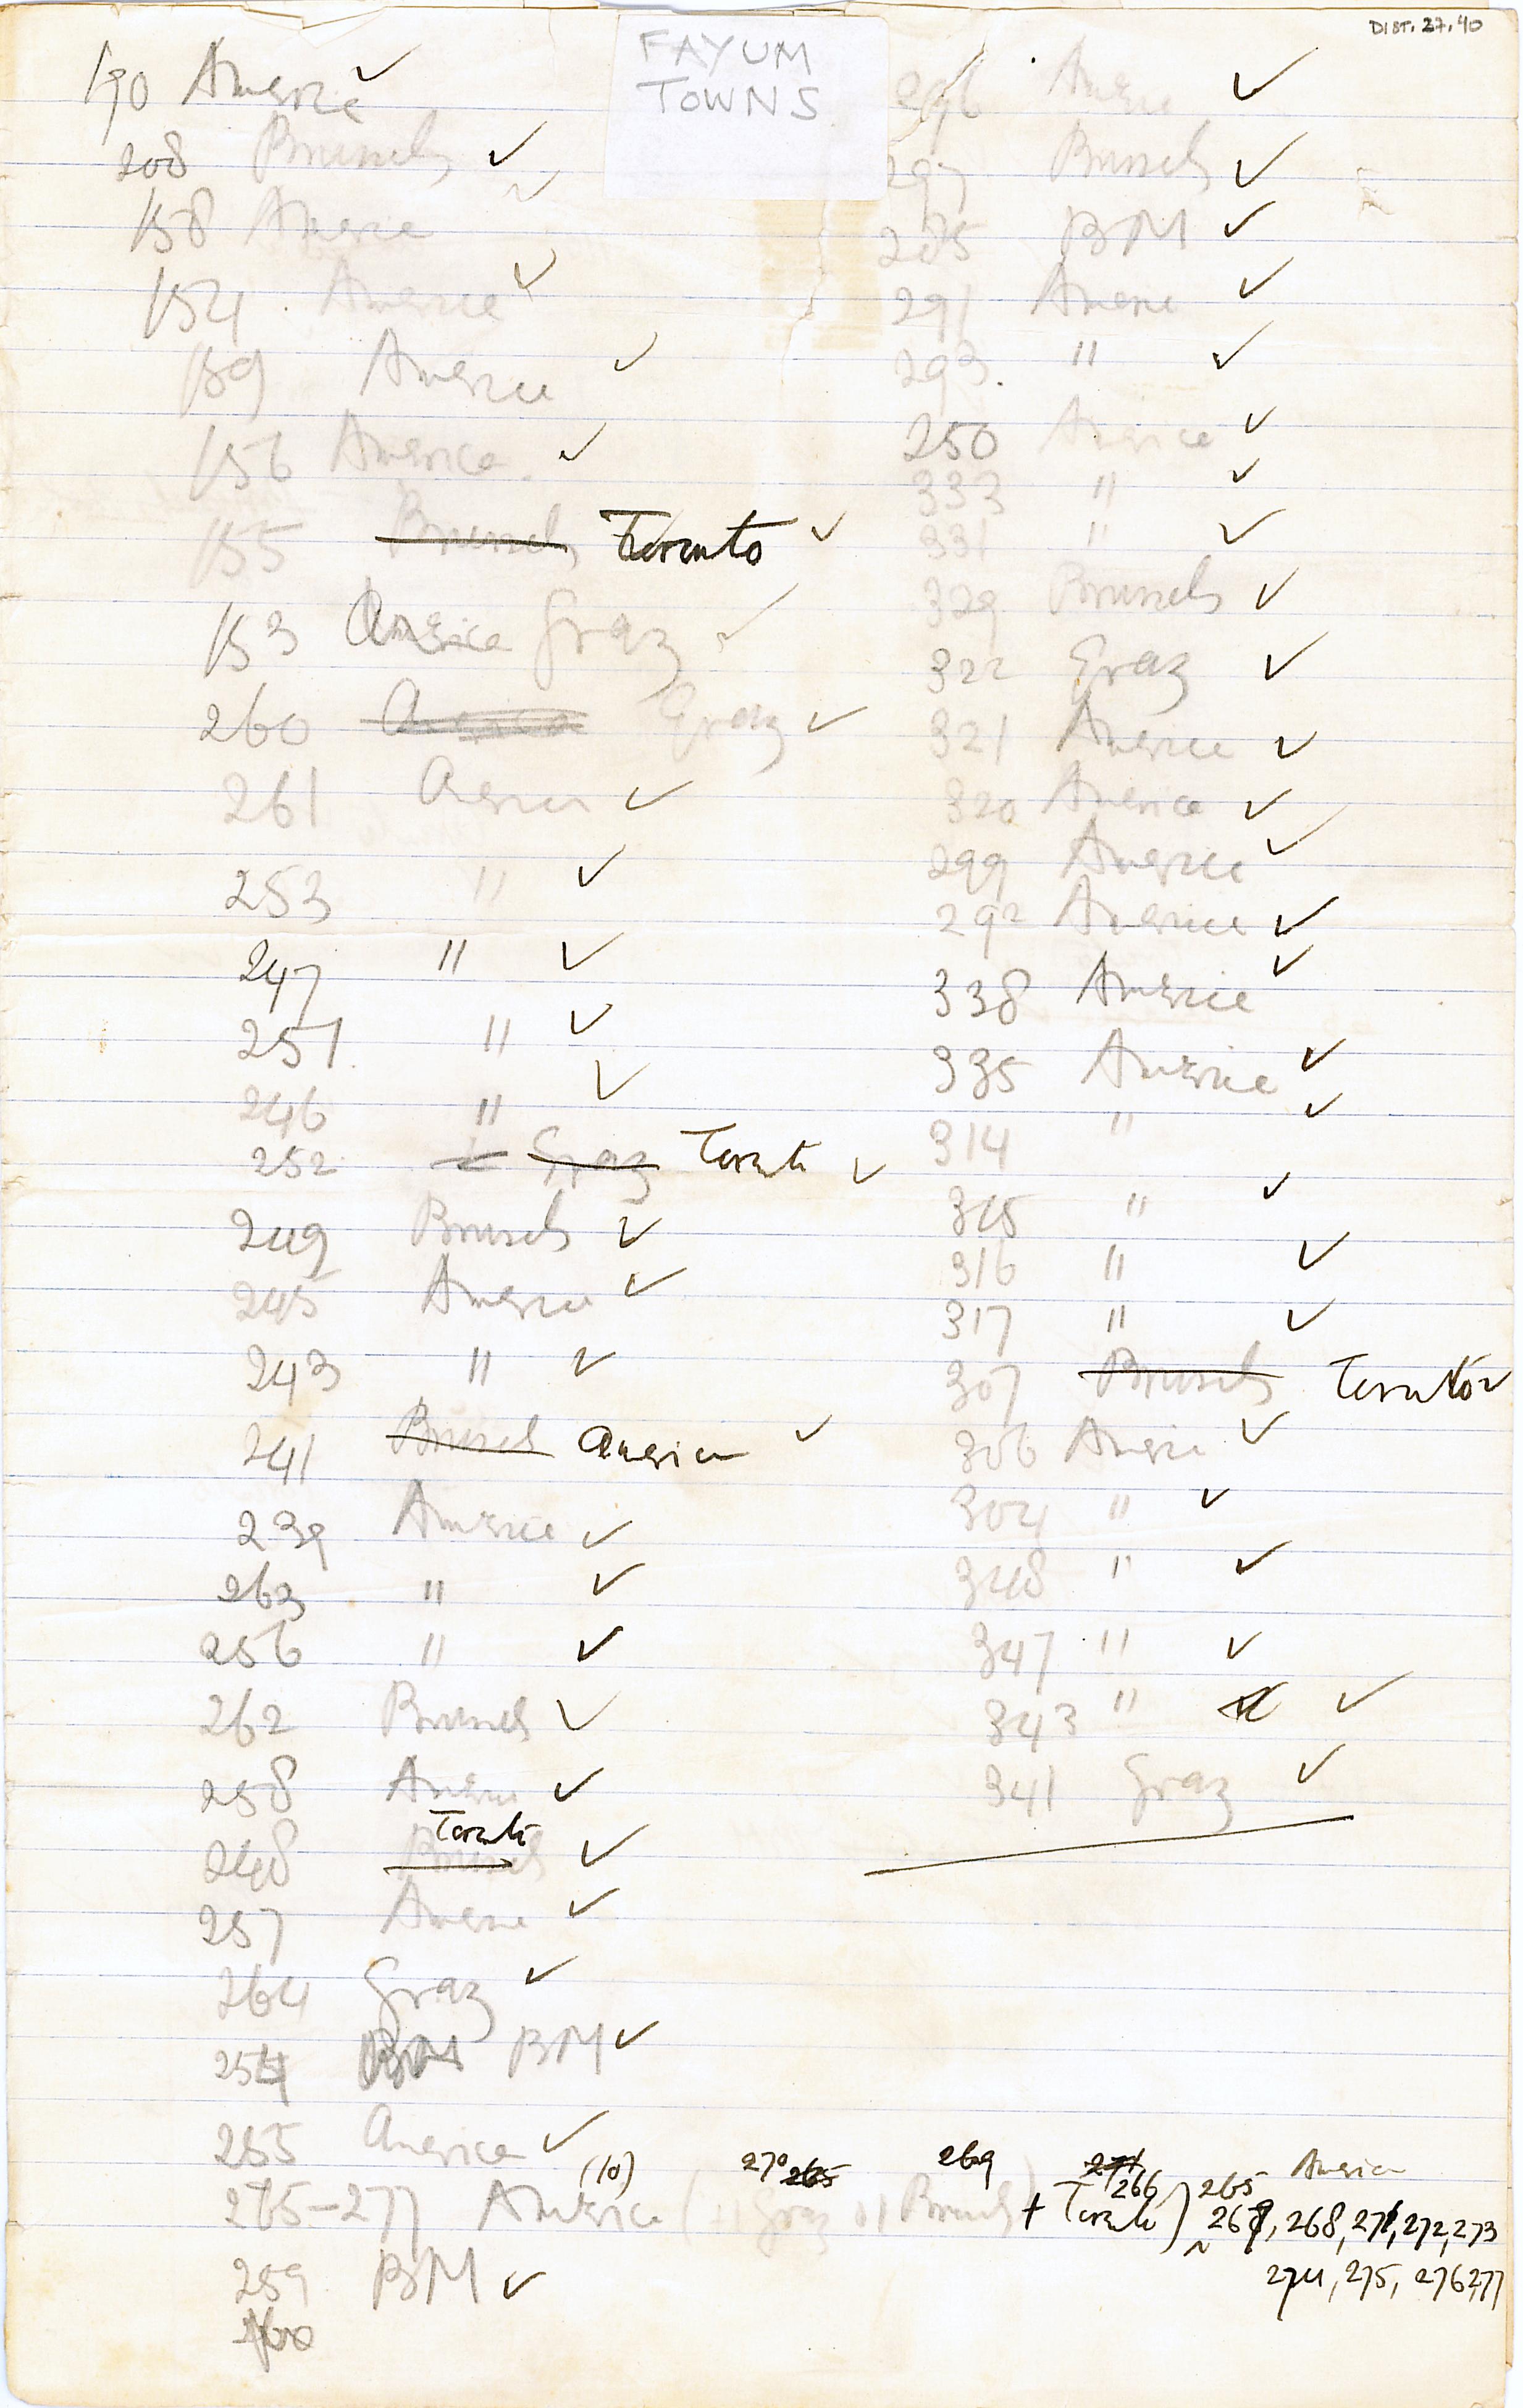 DIST. 27.40
FAYUM
TOWNS
190 America ✓
208 Brussels ✓
158 America ✓
154 America ✓
159 America ✓
156 America ✓
155 Brussels Toronto ✓
153 America Graz ✓
260 America Graz ✓
261 America ✓
253 " ✓
247 " ✓
251 " ✓
246 " ✓
252 Graz Toronto ✓
249 Brussels ✓
245 America ✓
243 " ✓
241 Brussels America ✓
239 America ✓
263 " ✓
256 " ✓
262 Brussels ✓
258 America ✓
Toronto
248 Brussels ✓
257 America ✓
264 Graz ✓
254 BM BM ✓
255 America ✓
(10) 270 265 269 271 266 265 America
265-277 America (+1 Graz +1 Brussels) + Toronto) 267, 268, 271, 272, 273
274, 275, 276, 277
259 BM ✓
160
296 America ✓
297 Brussels ✓
285 BM ✓
291 America ✓
293. " ✓
250 America ✓
333 " ✓
331 " ✓
329 Brussels ✓
322 Graz ✓
321 America ✓
320 America ✓
299 America ✓
292 America ✓
338 America ✓
335 America ✓
314 " ✓
315 " ✓
316 " ✓
317 " ✓
307 Brussels Toronto ✓
306 America ✓
304 " ✓
348 " ✓
347 " ✓
343 " ✓
341 Graz ✓